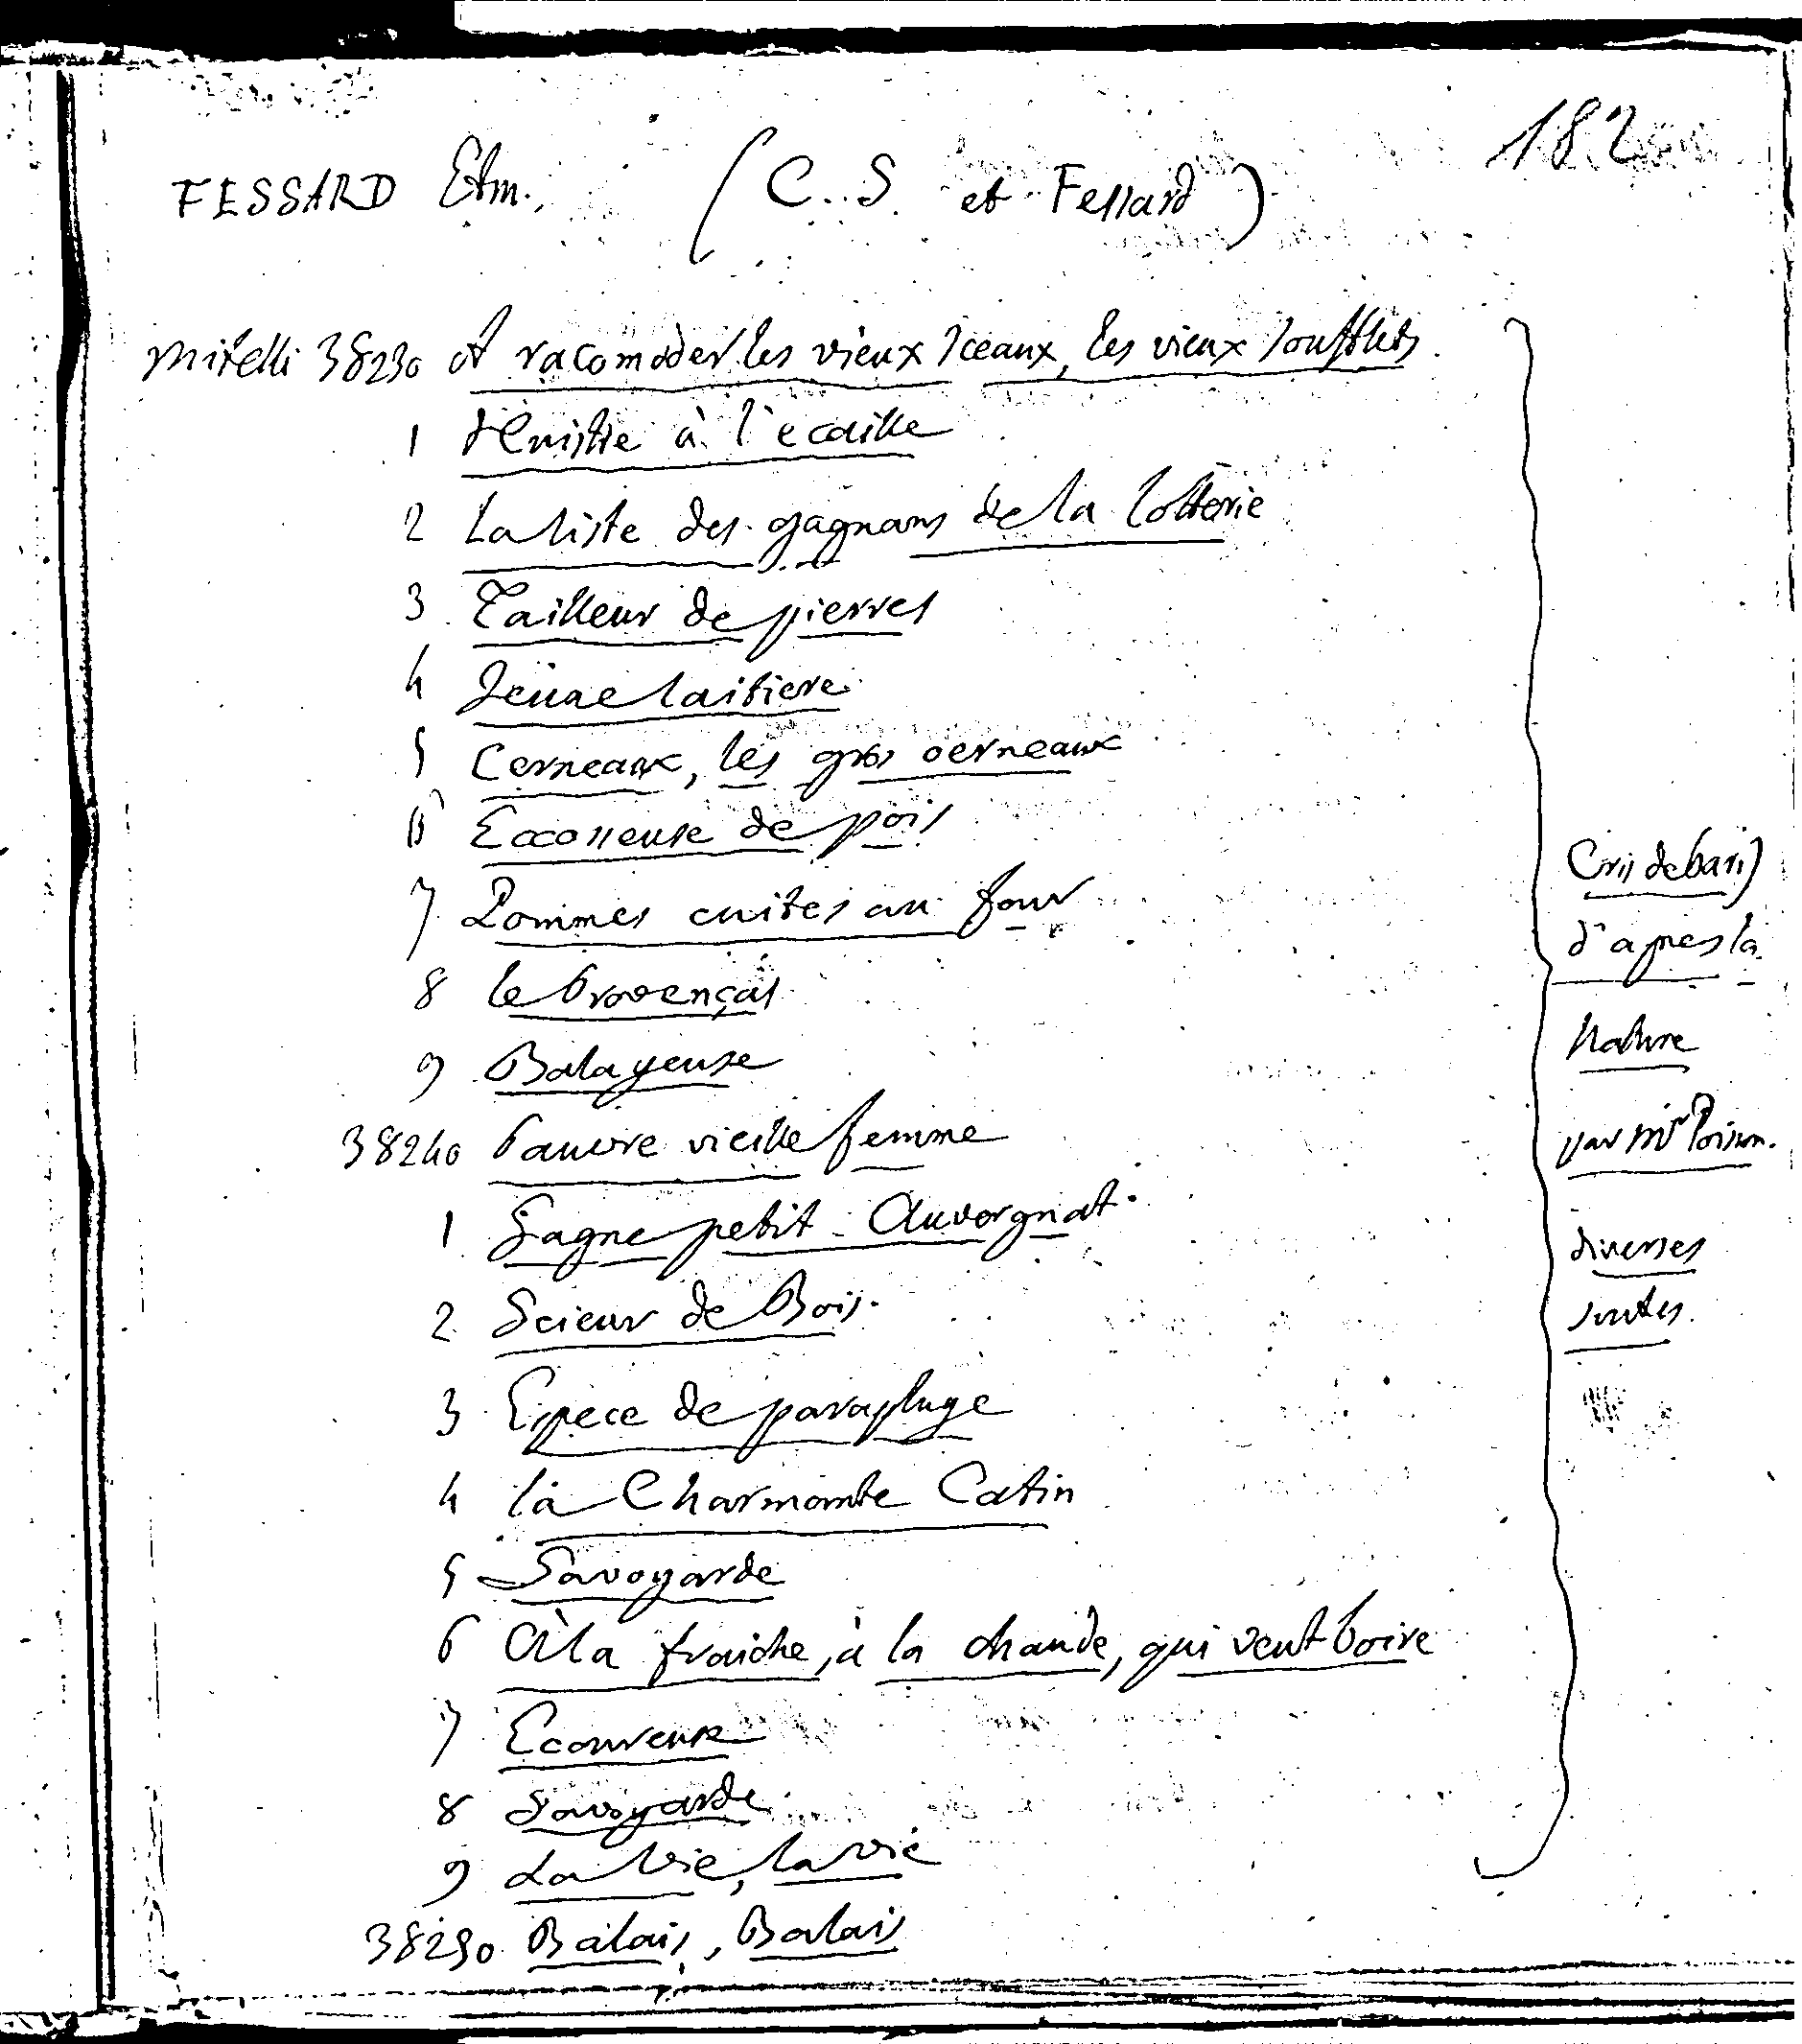 182
FESSARD Etm. (C. S. et Fessard)
Mitelli 38230 A racomoder les vieux sceaux, les vieux soufflets.
1 d'huistre à l'ecaille
2 La liste des gagnans de la lotterie
3 Tailleur de pierres
4 Jeune laitiere
5 Cerneaux, les gros cerneaux
6 Ecosseuse de pois
7 Pommes cuites au four
8 le Provençal
9 Balayeuse
38240 Pauvre vieille femme
1 Gagne petit Auvergnat
2 Scieur de Bois.
3 Espece de parapluye
4 la Charmante Catin
5 Savoyarde
6 A la fraiche, à la chaude, qui veut boire
7 Ecoureuse
8 Savoyarde
9 La vie, la vie
38250 Balais, Balais
Cris de Paris
d'apres la
Nature
par Mr Poisson.
diverses
suites.